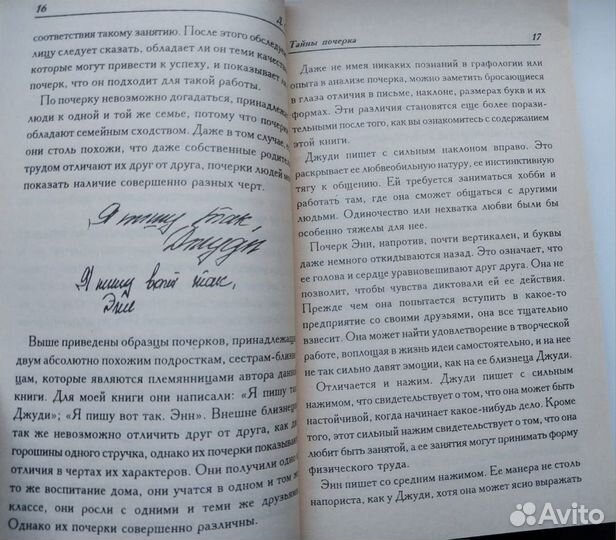 16
Д.
соответствия такому занятию. После этого обследуе
лицу следует сказать, обладает ли он теми качеств
которые могут привести к успеху, и показывает ли
почерк, что он подходит для такой работы.
По почерку невозможно догадаться, принадлеж
люди к одной и той же семье, потому что почерк
обладают семейным сходством. Даже в том случае,
они столь похожи, что даже собственные родител
трудом отличают их друг от друга, почерки людей мо
показать наличие совершенно разных черт.
Я пишу так,
Джуди
Я пишу вот так,
Энн
Выше приведены образцы почерков, принадлежа
двум абсолютно похожим подросткам, сестрам-близ
цам, которые являются племянницами автора данн
книги. Для моей книги они написали: «Я пишу т
Джуди»; «Я пишу вот так. Энн». Внешне близне
так же невозможно отличить друг от друга, как д
горошины одного стручка, однако их почерки показыв
отличия в чертах их характеров. Они получили одно
то же воспитание дома, они учатся в одном и том ж
классе, они росли с одними и теми же друзьям
Однако их почерки совершенно различны.
Тайны почерка
17
Даже не имея никаких познаний в графологии или
опыта в анализе почерка, можно заметить бросающиеся
в глаза отличия в письме, наклоне, размерах букв и их
формах. Эти различия становятся еще более порази-
тельными после того, как вы ознакомитесь с содержанием
этой книги.
Джуди пишет с сильным наклоном вправо. Это
раскрывает ее любвеобильную натуру, ее инстинктивную
тягу к общению. Ей требуется заниматься хобби и
работать там, где она сможет общаться с другими
людьми. Одиночество или нехватка любви были бы
особенно тяжелы для нее.
Почерк Энн, напротив, почти вертикален, и буквы
даже немного откидываются назад. Это означает, что
ее голова и сердце уравновешивают друг друга. Она не
позволит, чтобы чувства диктовали ей ее действия.
Прежде чем она попытается вступить в какое-то
предприятие со своими друзьями, она все тщательно
взвесит. Она может найти удовлетворение в творческой
работе, воплощая в жизнь идеи самостоятельно, и на нее
не так сильно давят эмоции, как на ее близнеца Джуди.
Отличается и нажим. Джуди пишет с сильным
нажимом, что свидетельствует о том, что она может быть
настойчивой, когда начинает какое-нибудь дело. Кроме
того, этот сильный нажим свидетельствует о том, что она
любит быть занятой, а ее занятия могут принимать форму
физического труда.
Энн пишет со средним нажимом. Ее манера не столь
напориста, как у Джуди, хотя она может ясно выражать
Avito